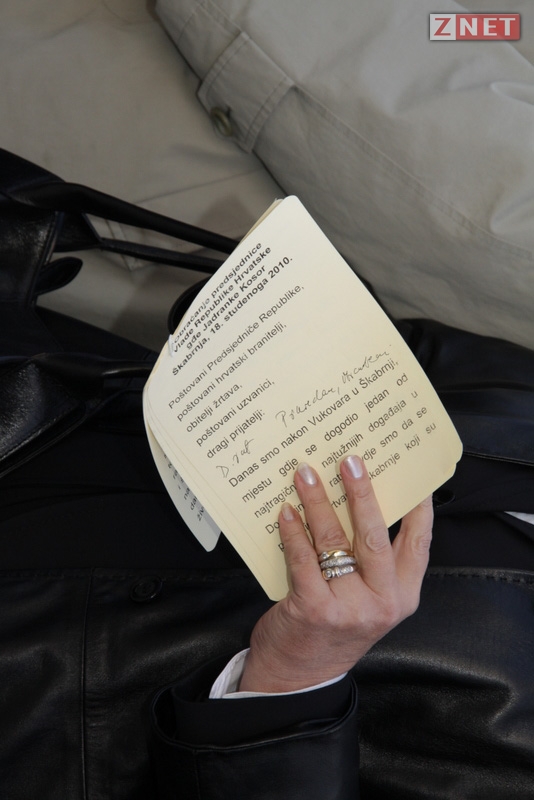 ZNET
predsjednice
vlade Republike Hrvatske
gđe Jadranke Kosor
Škabrnja, 18. studenoga 2010.
Poštovani Predsjedniče Republike,
poštovani hrvatski branitelji,
obitelji žrtava,
poštovani uzvanici,
dragi prijatelji:
Danas smo nakon Vukovara u Škabrnji,
mjestu gdje se dogodio jedan od
najtužnijih događaja u
smo da se
Škabrnje koji su